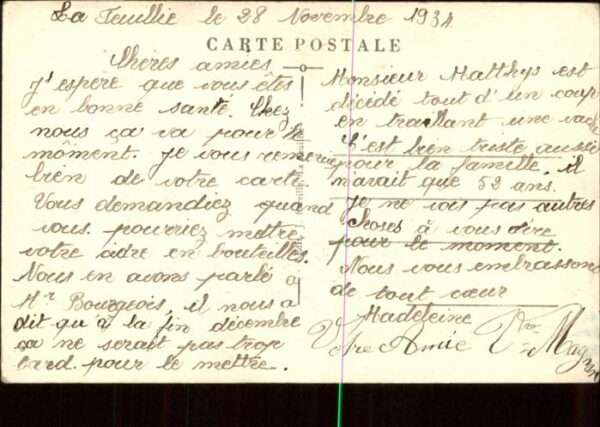 La Feuillie le 28 Novembre 1934
CARTE POSTALE
Chères amies
J'espère que vous êtes
en bonne santé. Chez
nous ça va pour le
môment. Je vous remercie
bien de votre carte.
Vous demandiez quand
vous pourriez mettre
votre cidre en bouteilles.
Nous en avons parlé à
Mr Bourgeois, il nous a
dit qu'à la fin décembre
ça ne serait pas trop
tard pour le mettre.
Monsieur Matthys est
décédé tout d'un coup
en trayant une vache
C'est bien triste aussi
pour la famille. il
n'avait que 52 ans.
Je ne vois pas autres
choses à vous dire
pour le moment.
Nous vous embrassons
de tout cœur
Madeleine
Votre Amie